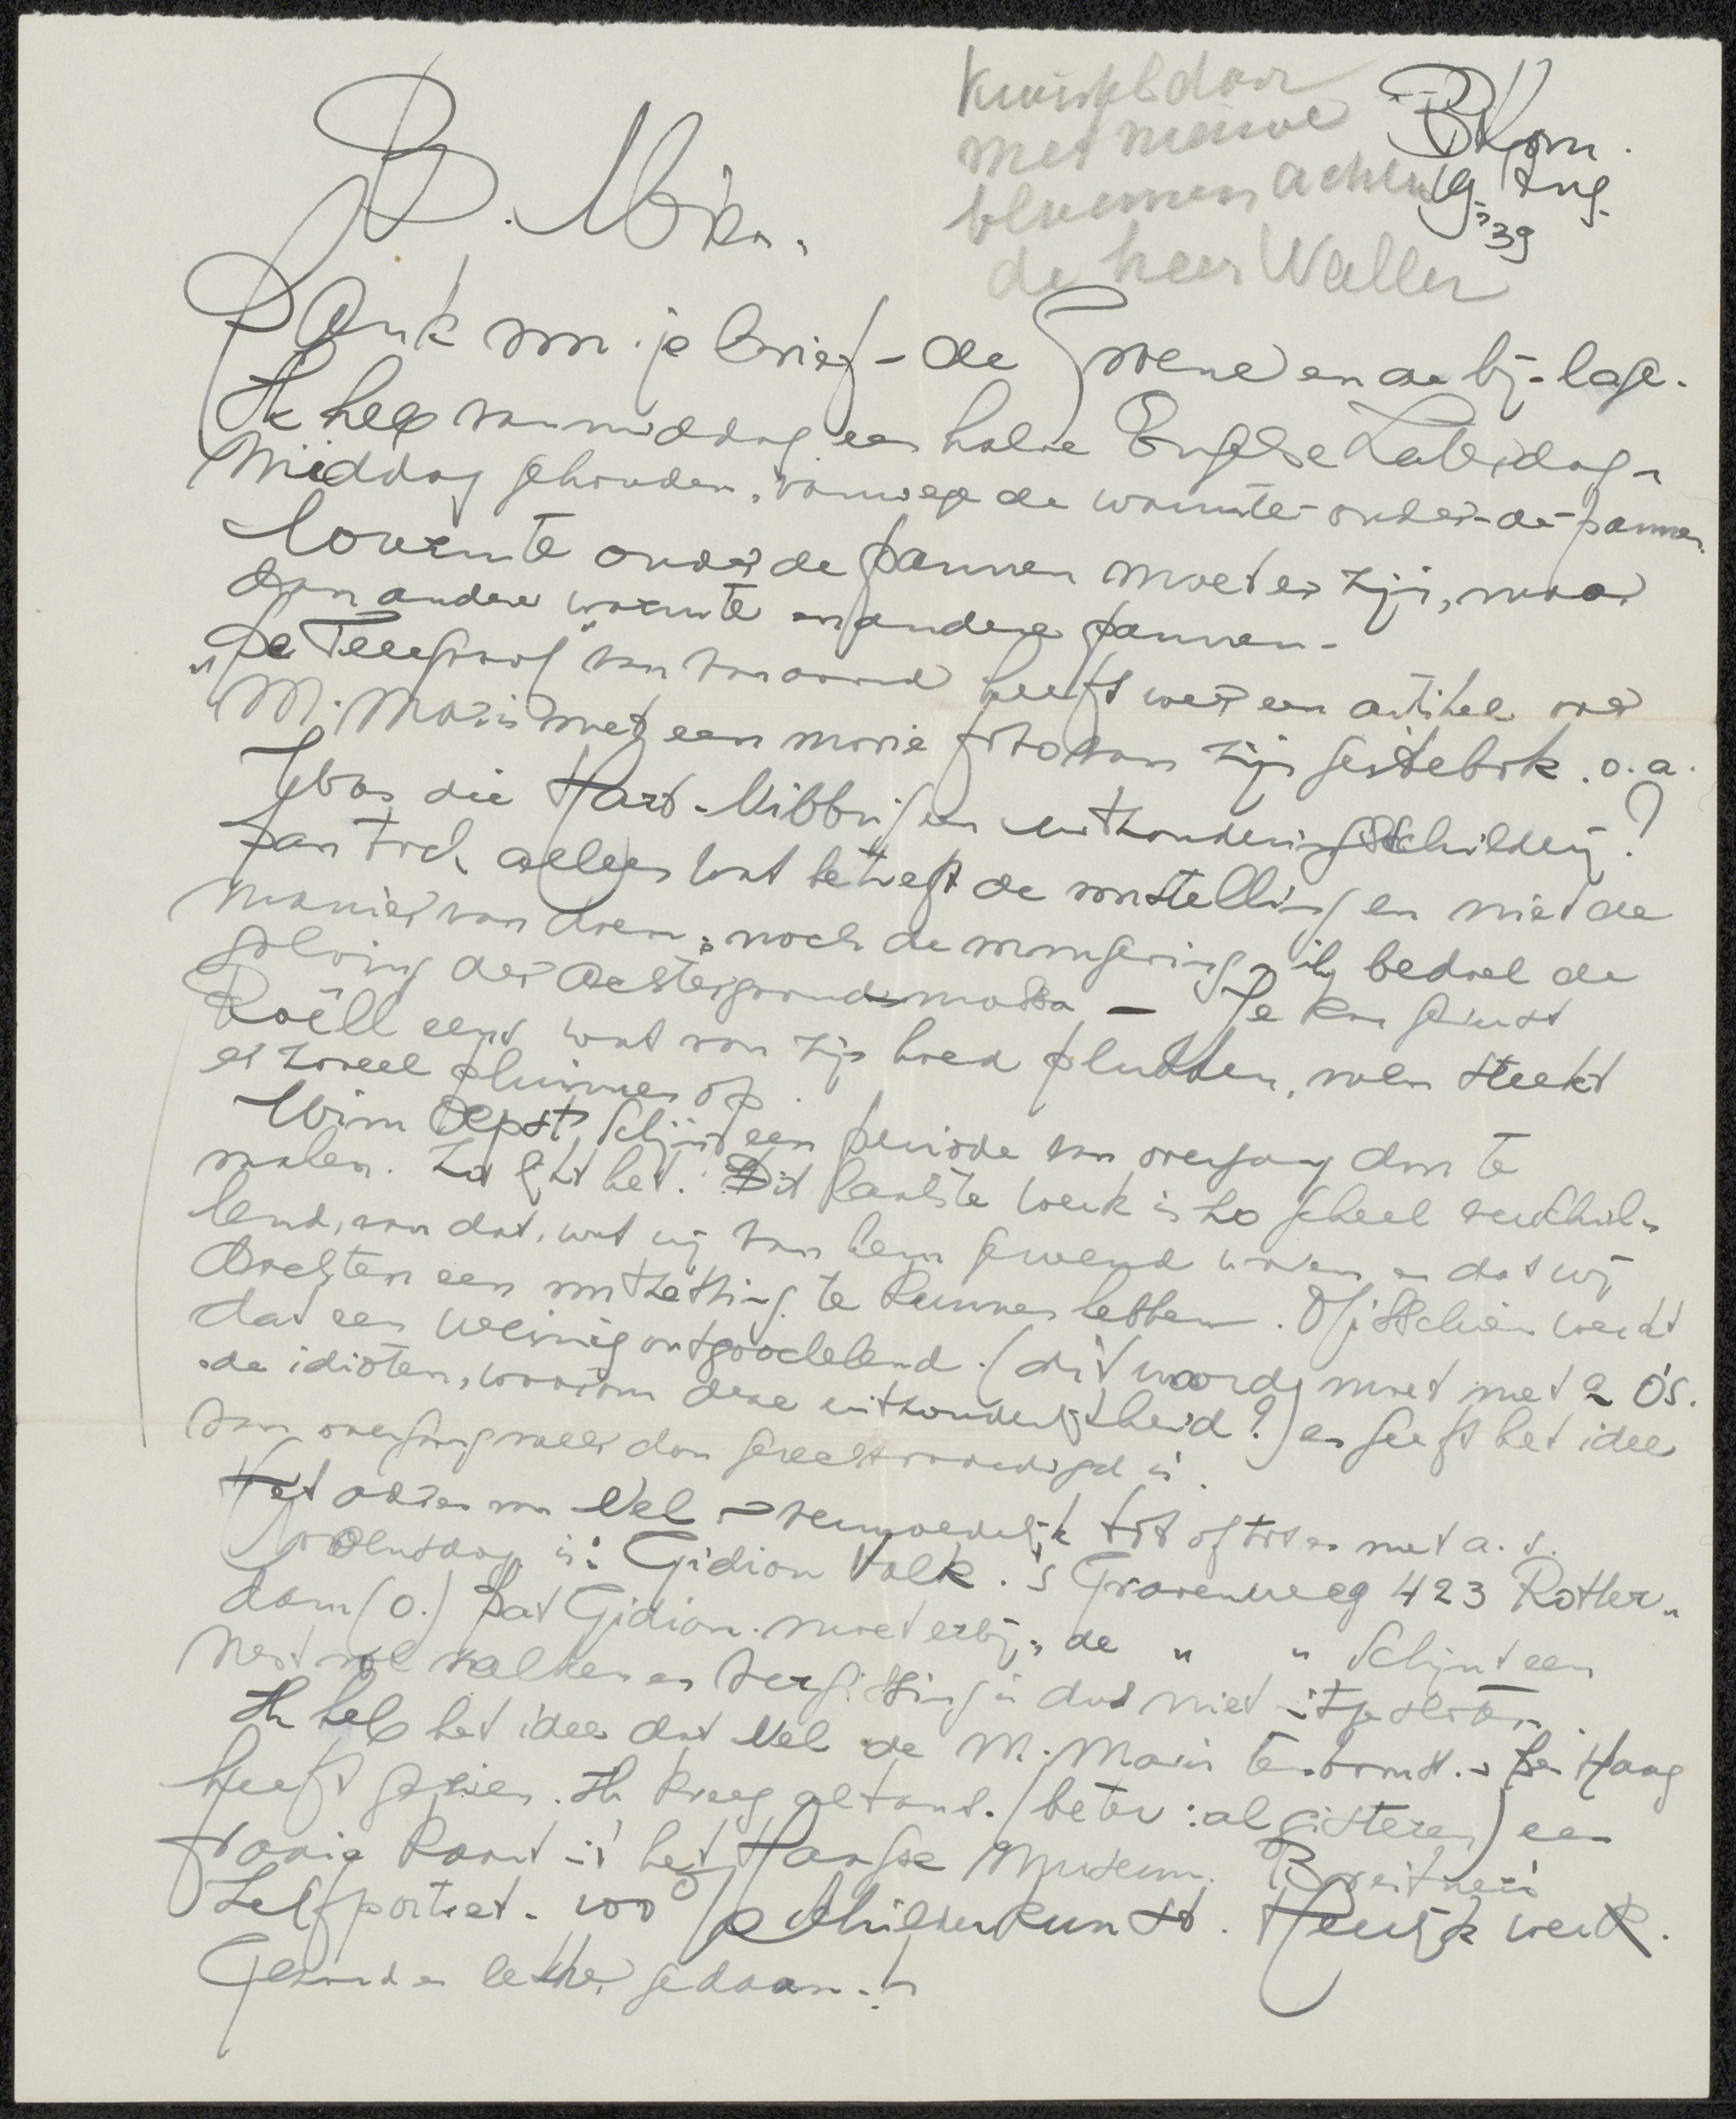 Kwispeldoor
met nieuwe
bloemen achter
de heer Waller
B Kom.
19 Aug.
'39
B. Wim.
Dank voor je brief - de Groene en de bij-lage.
Ik heb vanmiddag een halve Engelse Zaterdag-
middag gehouden, vanwege de warmte-onder-de-pannen.
Warmte onder de pannen moet er zijn, maar
dan andere warmte en andere pannen.
"De Telegraaf" van vanavond heeft weer een artikel over
M. Maris met een mooie foto van zijn geitebok. o.a.
Was die Hart-Nibbrig een uitzonderingsschilderij?
Dan toch alleen wat betreft de voorstelling en niet de
manier van doen, noch de omgeving, ik bedoel de
golving der achtergrondsmassa — Je kan gerust
Roëll eens wat van zijn hoed plukken, men steekt
er zoveel pluimen op.
Wim Oepts schijnt een periode van overgang door te
maken. Zo lijkt het. Dit laatste werk is zo geheel verschil-
lend, van dat, wat wij van hem gewend waren en dat wij
dachten een voortzetting te kunnen hebben. Misschien werkt
dat een weinig ontgoochelend. (dit woord moet met 2 o's.
de idioten, waarom deze uitzonderlijkheid?) en geeft het idee
van overgang meer dan gerechtvaardigd is.
Het adres van Nel - vermoedelijk tot of tot en met a.s.
Woensdag is: Gidion Valk. 's Gravenweg 423 Rotter-
dam (O.) Dat Gidion moet erbij, de " " schijnt een
nest vol valken en vergissing is dus niet uitgesloten.
Ik heb het idee dat Nel de M. Maris tentoonst. in Den Haag
heeft gezien. Ik kreeg althans. (beter: al gisteren) een
fraaie kaart uit het Haagse Museum. Breitner's
Zelfportret. 100% schilderkunst. Heerlijk werk.
Gezond en lekker gedaan.!